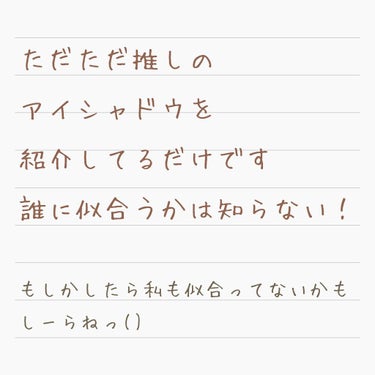 ただただ推しの
アイシャドウを
紹介してるだけです
誰に似合うかは知らない！
もしかしたら私も似合ってないかも
しーらねっ()